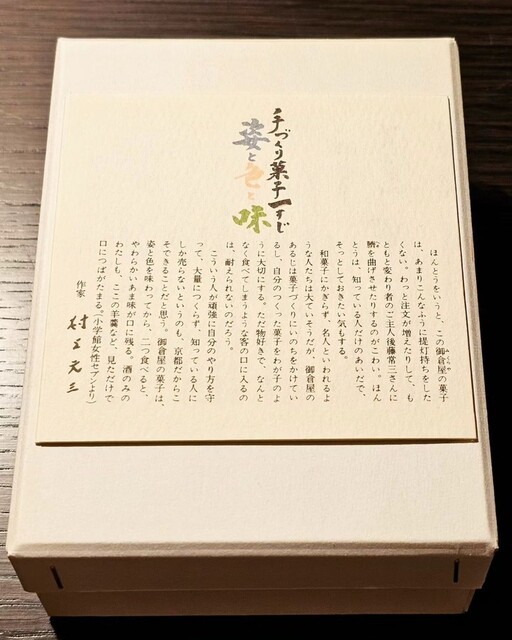 手づくり菓子一すじ
姿と色と味
ほんとうをいうと、この御倉屋の菓子
は、あまりこんなふうに提灯持ちをした
くない。わっと注文が増えたりして、も
ともと変わり者のご主人後藤常三さんに
臍を曲げさせたりするのがこわい。ほん
とうは、知っている人だけのあいだで、
そっとしておきたい気もする。
和菓子にかぎらず、名人といわれるよ
うな人たちは大ていそうだが、御倉屋の
あるじは菓子づくりにいのちをかけてい
るし、自分のつくった菓子をわが子のよ
うに大切にする。ただ物好きで、なんと
なく食べてしまうような客の口に入るの
は、耐えられないのだろう。
こういう人が頑強に自分のやり方を守
って、大量につくらず、知っている人に
しか売らないというのも、京都だからこ
そできることだと思う。御倉屋の菓子は、
姿と色を味わってから、二つ食べると、
やわらかいあま味が口に残る。酒のみの
わたしも、ここの羊羹など、見ただけで
口につばがたまる。(小学館女性セブンより)
作家 村上元三